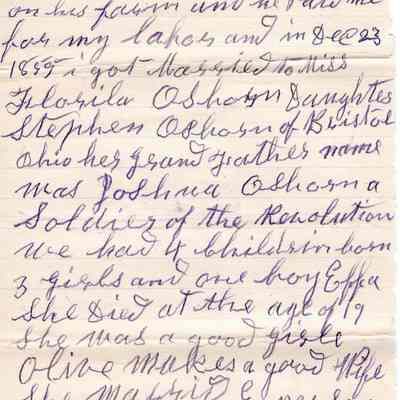 on his farm and he Paid me
for my labor and in Dec 23
1855 i got Married to Miss
Florila Osborn Daughter
Stephen Osborn of Bristol
Ohio her grand father name
was Joshua Osborn a
Soldier of the Revolution
we had 4 Children born
3 girls and one boy Effa
She Died at the age of 19
She was a good girl
Olive makes a good Wife
She Married